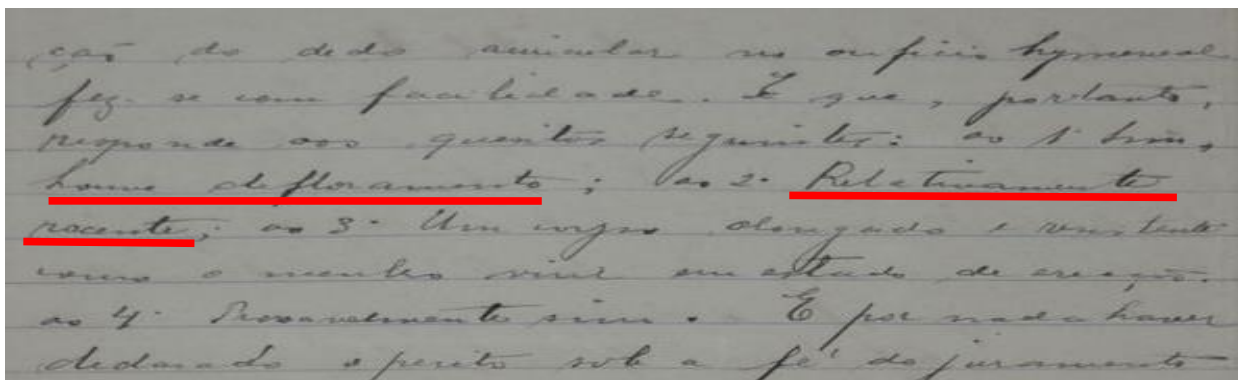 ção do dedo auricular no orificio hymeneal
fez-se com facilidade. E que, portanto,
responde aos quesitos seguintes: ao 1º Sim,
houve defloramento; ao 2º Relativamente
recente; ao 3º Um corpo alongado e resistente
como o membro viril em estado de erecção.
ao 4º Provavelmente sim. E por nada haver
declarado o perito sob a fé do juramento